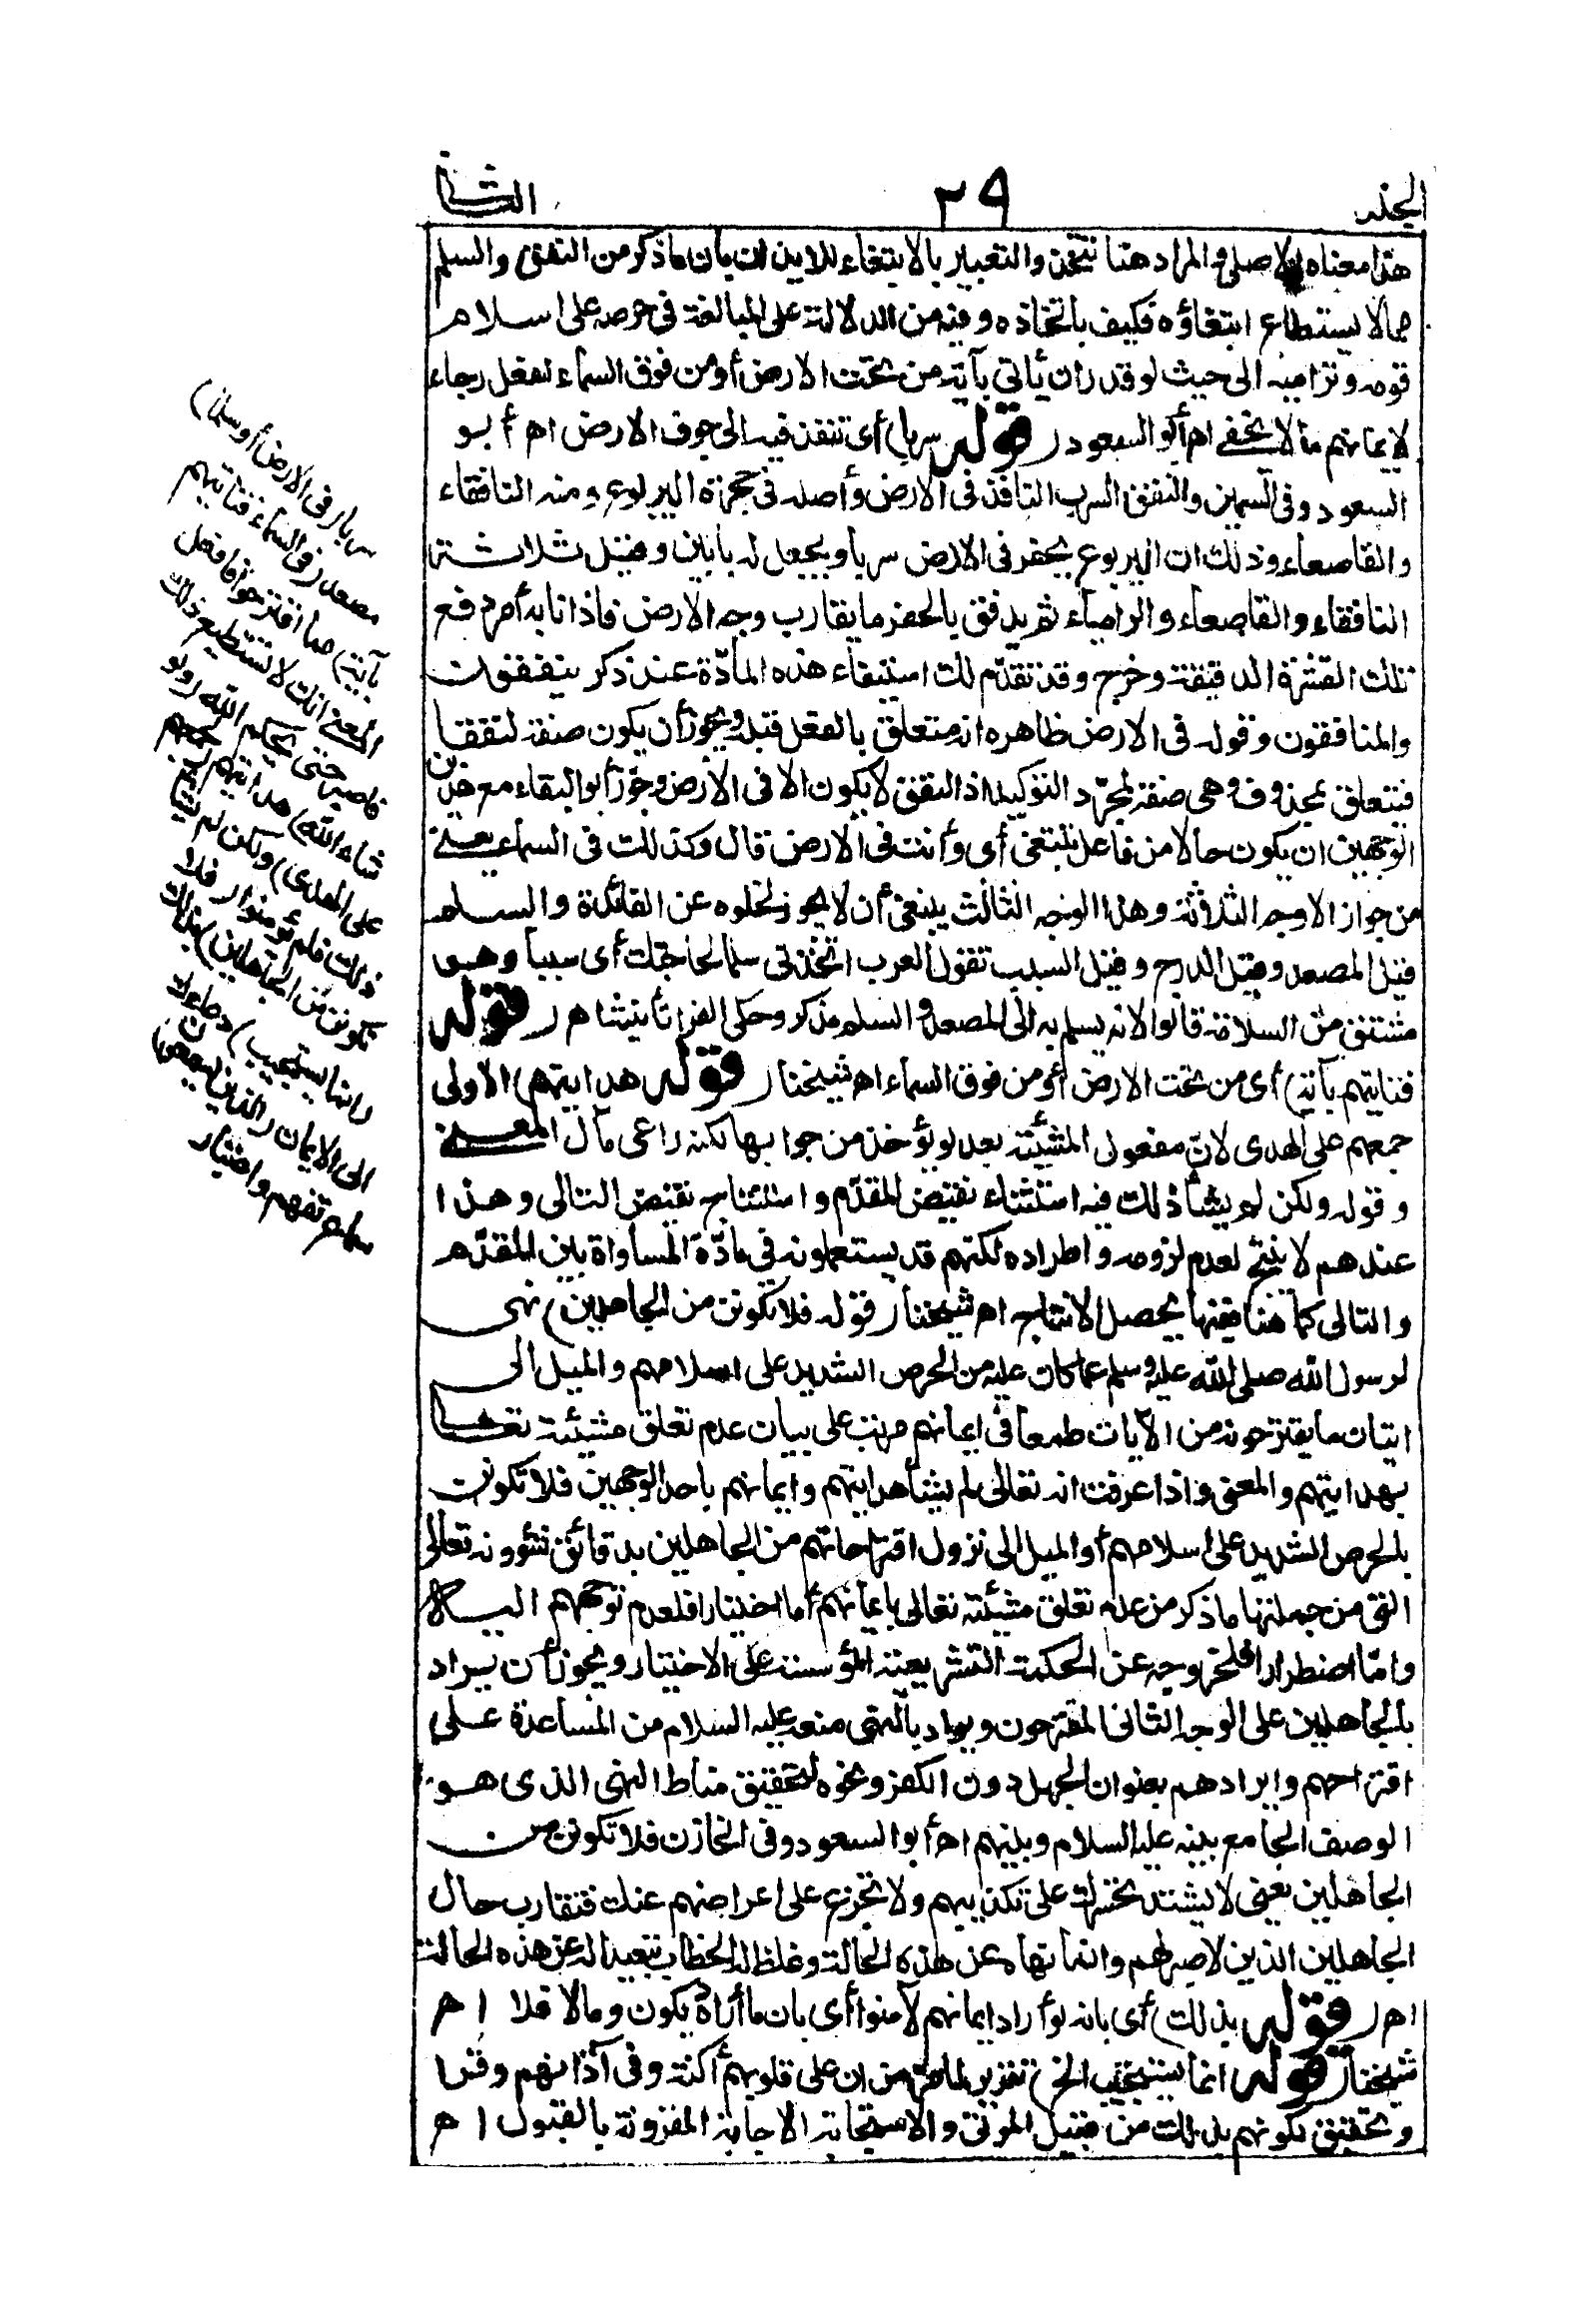 الجزء
٢٩
الثانى
هذا معناه الاصلى والمراد هنا تتخذ والتعبير بالابتغاء للايذان بأن ما ذكر من النفق والسلم
مما لا يستطاع ابتغاؤه فكيف باتخاذه وفيه من الدلالة على المبالغة فى حرصه على اسلام
قومه وتراميه الى حيث لو قدر ان يأتى بآية من تحت الارض أو من فوق السماء لفعل رجاء
لايمانهم ما لا يخفى اه أبو السعود (قوله سربا) أى تنفذ فيه الى جوف الارض اه أبو
السعود وفى السمين والنفق السرب النافذ فى الارض وأصله فى جحرة اليربوع ومنه النافقاء
والقاصعاء وذلك ان اليربوع يحفر فى الارض سربا ويجعل له بابين وقيل ثلاثة
النافقاء والقاصعاء والراميآء ثم يدقق بالحفر ما يقارب وجه الارض فاذا نابه أمر دفع
تلك القشرة الدقيقة وخرج وقد تقدّم لك استيفاء هذه المادّة عند ذكر ينفقون
والمنافقون وقوله فى الارض ظاهره انه متعلق بالفعل قبله ويجوز أن يكون صفة لنفقا
فيتعلق بمحذوف وهى صفة لمجرّد التوكيد اذ النفق لا يكون الا فى الأرض وجوّز أبو البقاء مع هذين
الوجهين ان يكون حالا من فاعل تبتغى أى وأنت فى الارض قال وكذلك فى السماء يعنى
من جواز الاوجه الثلاثة وهذا الوجه الثالث ينبغى أن لا يجوز لخلوه عن الفائدة والسلم
قيل المصعد وقيل الدرج وقيل السبب تقول العرب اتخذنى سلما لحاجتك أى سببا وهو
مشتق من السلامة قالوا لانه يسلم به الى المصعد والسلم مذكر وحكى الفرا تأنيثه اه (قوله
فتأتيهم بآية) أى من تحت الارض أو من فوق السماء اه شيخنا (قوله هدايتهم) الاولى
جمعهم على الهدى لانّ مفعول المشيئة بعد لو يؤخذ من جوابها لكنه راعى مآل المعنى
وقوله ولكن لم يشأ ذلك فيه استثناء نقيض المقدّم واستنتاج نقيض التالى وهذا
عندهم لا ينتج لعدم لزومه واطراده لكنهم قد يستعملونه فى مادّة المساواة بين المقدّم
والتالى كما هنا فيها يحصل الانتاج اه شيخنا (قوله فلا تكونن من الجاهلين) نهى
لرسول الله صلى الله عليه وسلم عما كان عليه من الحرص الشديد على اسلامهم والميل الى
اتيان ما يقترحونه من الآيات طمعا فى ايمانهم مرتب على بيان عدم تعلق مشيئته تعالى
بهدايتهم والمعنى واذا عرفت انه تعالى لم يشأ هدايتهم وايمانهم باحد الوجهين فلا تكونن
بالحرص الشديد على اسلامهم أو الميل الى نزول اقتراحاتهم من الجاهلين بدقائق شؤونه تعالى
التى من جملتها ما ذكر من عدم تعلق مشيئته تعالى بايمانهم أما اختيارا فلعدم توجههم اليه
وامّا اضطرارا فلخروجه عن الحكمة التشريعية المؤسسة على الاختيار ويجوز أن يراد
بالجاهلين على الوجه الثانى المقترحون ويراد بالنهى منعه عليه السلام من المساعدة على
اقتراحهم وايرادهم بعنوان الجهل دون الكفر ونحوه لتحقيق مناط النهى الذى هو
الوصف الجامع بينه عليه السلام وبينهم اه أبو السعود وفى الخازن فلا تكونن من
الجاهلين يعنى لا يشتد تحسرك على تكذيبهم ولا تجزع على اعراضهم عنك فتقارب حال
الجاهلين الذين لا صبر لهم وانما نهاه عن هذه الحالة وغلظ له الخطاب تبعيدا له عن هذه الحالة
اه (قوله بذلك) أى بانه لو أراد ايمانهم لآمنوا أى بان ما أراده يكون وما لا فلا اه
شيخنا (قوله انما يستجيب الخ) تقرير لما مرّ من ان على قلوبهم أكنة وفى آذانهم وقرا
وتحقيق لكونهم بذلك من قبيل الموتى والاستجابة الاجابة المقرونة بالقبول اه
سربا (فى الارض أو سلما)
مصعدا (فى السماء فتأتيهم
بآية) مما اقترحوا فافعل
المعنى انك لا تستطيع ذلك
فاصبر حتى يحكم الله (ولو
شاء الله) هدايتهم (لجمعهم
على الهدى) ولكن لم يشأ
ذلك فلم يؤمنوا (فلا
تكونن من الجاهلين) بذلك
(انما يستجيب) دعاءك
الى الايمان (الذين يسمعون)
سماع تفهم واعتبار